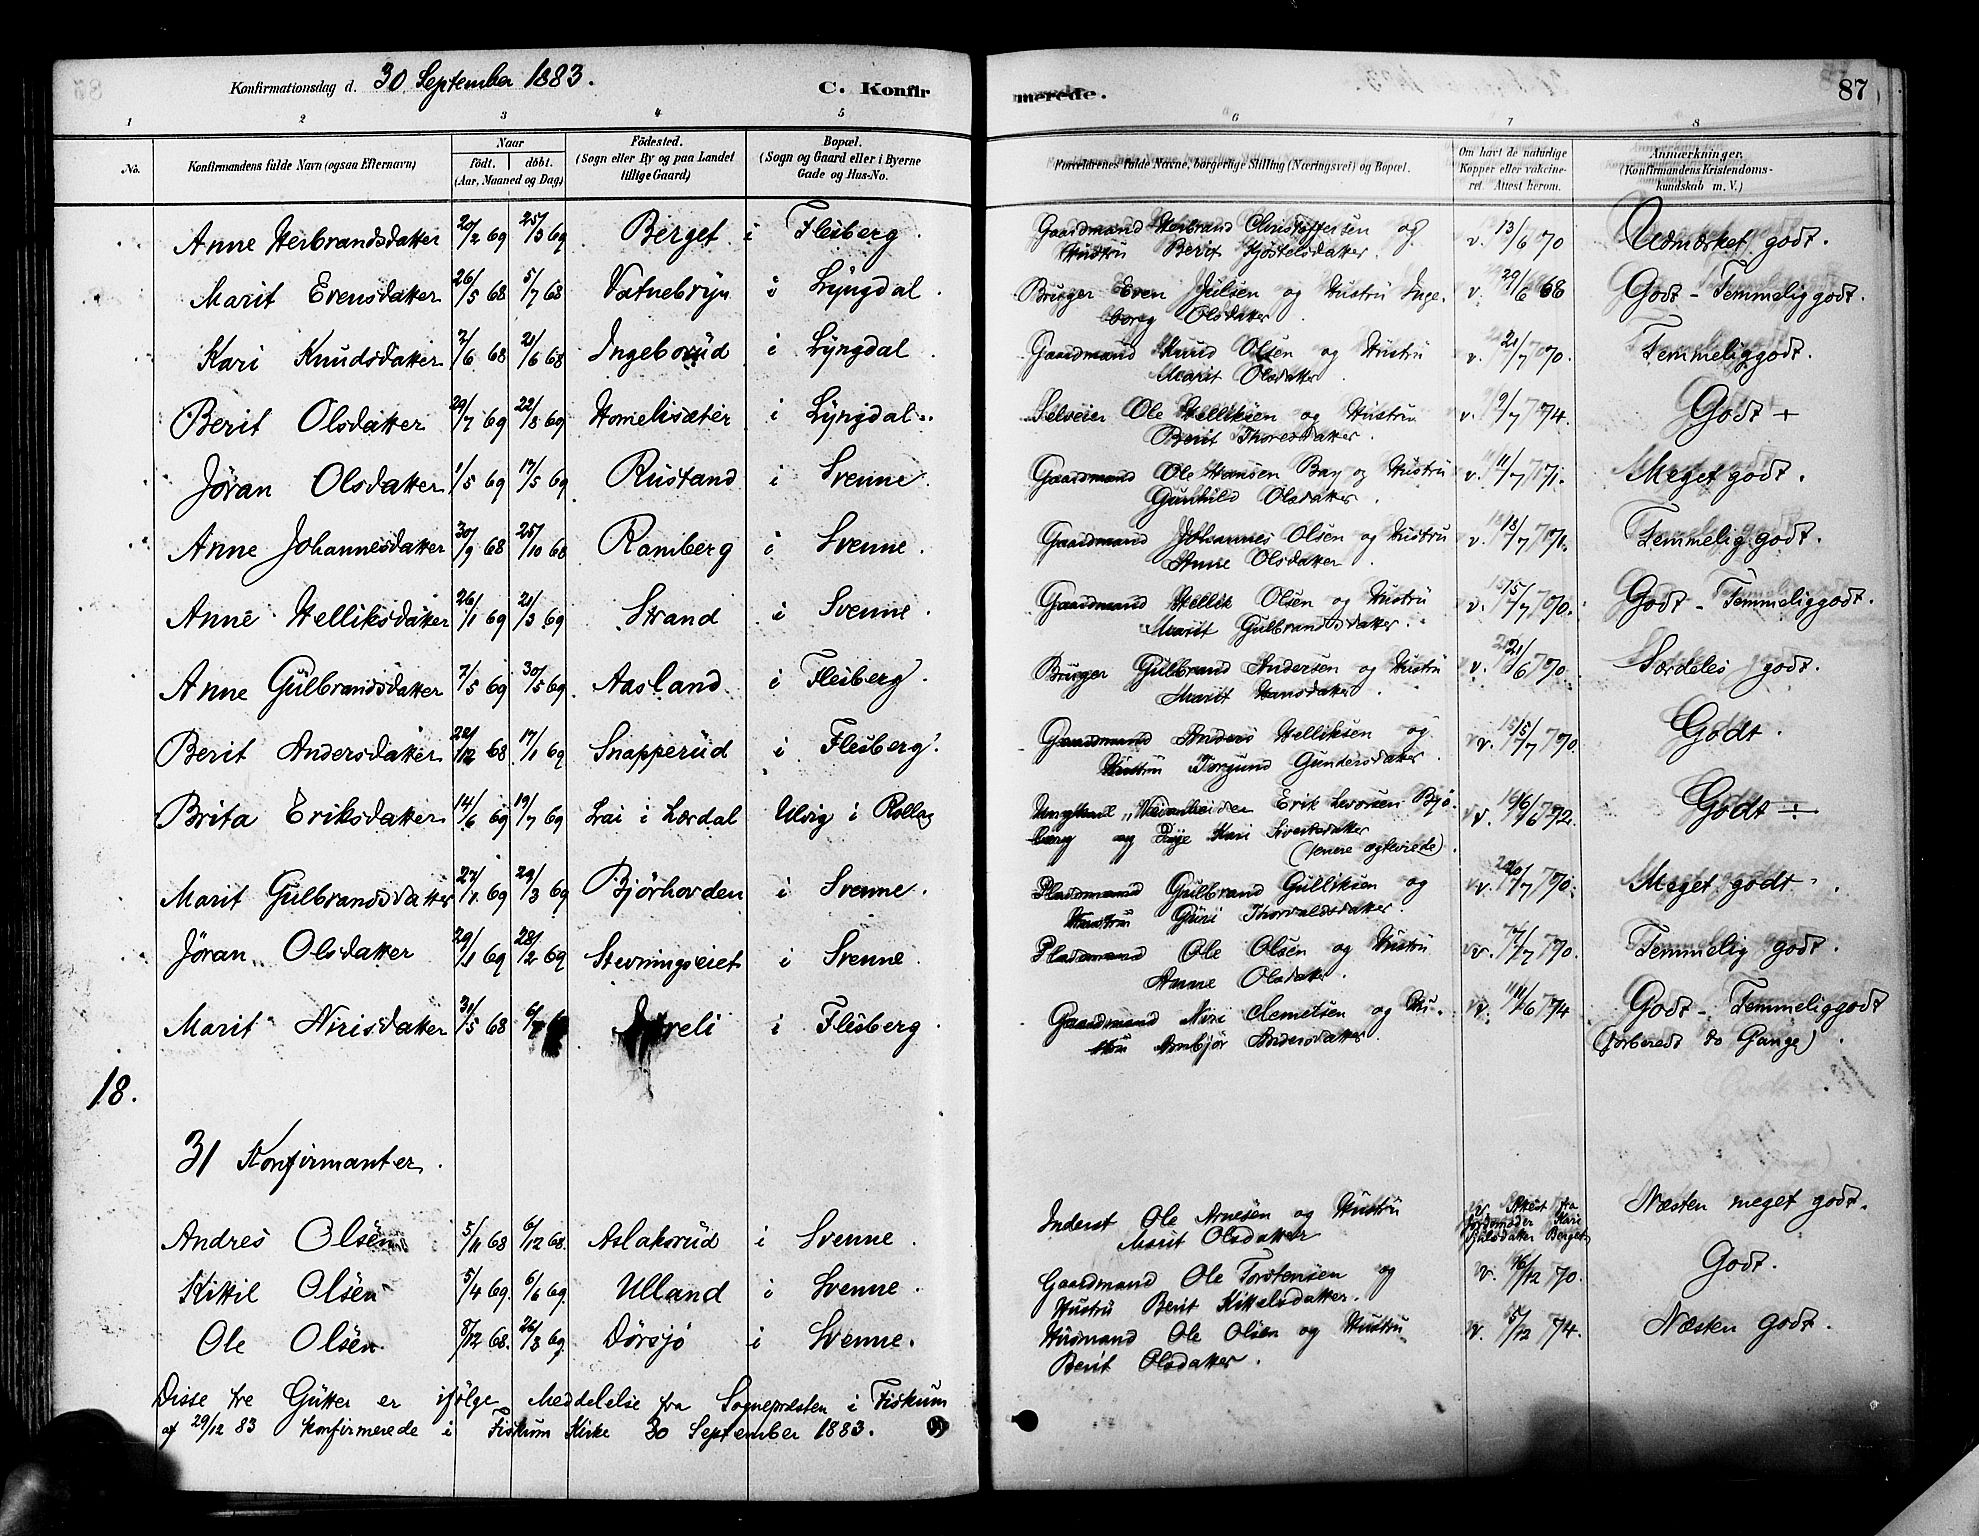 Konfirmationsdag d. 30 September 1883.
C. Konfirmerede.
87
1 2 3 4 5 6 7 8
No.
Konfirmandens fulde Navn (ogsaa Efternavn)
Naar
født. døbt.
(Aar, Maaned og Dag)
Fødested.
(Sogn eller By og paa Landet
tillige Gaard)
Bopæl.
(Sogn og Gaard eller i Byerne
Gade og Hus-No.
Forældrenes fulde Navne, borgerlige Stilling (Næringsvei) og Bopæl.
Om havt de naturlige
Kopper eller vakcine-
ret. Attest herom.
Anmærkninger.
(Konfirmandens Kristendoms-
kundskab m. V.)
Anne Herbrandsdatter 20/2 69 25/3 69 Berget i Flesberg. Gaardmand Herbrand Christoffersen og v. 13/6 70 Udmærket godt.
Hustru Berit Kjöstelsdatter.
Marit Evensdatter 26/5 68 5/7 68 Vatnebryn i Lyngdal. Bruger Even Julsen og Hustru Inge- v. 29/6 68 Godt - Temmelig godt.
borg Olsdatter.
Kari Knudsdatter 2/6 68 21/6 68 Ingeborüd i Lyngdal. Gaardmand Knud Olsen og Hustru v. 21/7 70. Temmelig godt.
Marit Olsdatter.
Berit Olsdatter 29/7 69 22/8 69 Homelisæter i Lyngdal. Selveier Ole Helliksen og Hustru v. 9/7 74. Godt +
Berit Thoresdatter.
Jöran Olsdatter 1/5 69 17/5 69 Rustand i Svenne. Gaardmand Ole Hansen Bay og Hustru v. 11/7 71. Meget godt.
Gunhild Olsdatter.
Anne Johannesdatter 30/9 68 25/10 68 Ramberg i Svenne. Gaardmand Johannes Olsen og Hustru v. 18/7 71. Temmelig godt.
Anne Olsdatter.
Anne Helliksdatter 26/1 69 21/3 69 Strand i Svenne. Gaardmand Hellik Olsen og Hustru v. 15/7 70. Godt - Temmelig godt.
Marit Gulbrandsdatter.
Anne Gülbrandsdatter 7/5 69 30/5 69 Aasland i Flesberg. Bruger Gülbrand Andersen og Hustru v. 21/6 70. Særdeles godt.
Marit Hansdatter
Berit Andersdatter 22/12 68 17/1 69 Snapperüd i Flesberg. Gaardmand Anders Helliksen og v. 15/7 70. Godt.
Hustru Torgund Gundersdatter.
Brita Eriksdatter 14/6 69 19/7 69 Lai i Lærdal Ulvig i Rollag Ungkarl Erik Leversen Bjö- v. 16/6 72. Godt ÷
berg og Pige Kari Sivertsdatter
(senere ægteviede).
Marit Gulbrandsdatter 27/1 69 29/3 69 Björhovden i Svenne. Pladsmand Gulbrand Gulliksen og v. 20/7 70. Meget godt.
Hustru Guni Thorvaldsdatter.
Jöran Olsdatter 29/1 69 28/2 69 Stevningseiet i Svenne. Pladsmand Ole Olsen og Hustru v. 7/7 70. Temmelig godt.
Anne Olsdatter.
Marit Nirisdatter 31/5 68 i Flesberg. Gaardmand Niri Clemetsen og Hu- v. 11/6 74 Godt - Temmelig godt
stru Armbjör Andersdatter. (forberedt to Gange).
18.
31 Konfirmanter.
Andres Olsen 5/11 68 6/12 68. Aslaksrüd i Svenne. Inderst Ole Arnesen og Hustru v. Attest fra Næsten meget godt.
Marit Olsdatter Jordemoder Kari
Hjulsdatter Berget
Kittil Olsen 5/4 69. 6/6 69. Ulland i Svenne. Gaardmand Ole Torstensen og v. 16/12 70. Godt.
Hustru Berit Kittelsdatter.
Ole Olsen 8/12 68. 26/3 69 Dörsjö i Svenne. Husmand Ole Olsen og Hustru v. 5/12 74. Næsten godt.
Berit Olsdatter.
Disse tre Gutter er ifölge Meddelelse fra Sognepræsten i Fiskum
af 29/12 83 konfirmerede i Fiskum Kirke 30 September 1883.